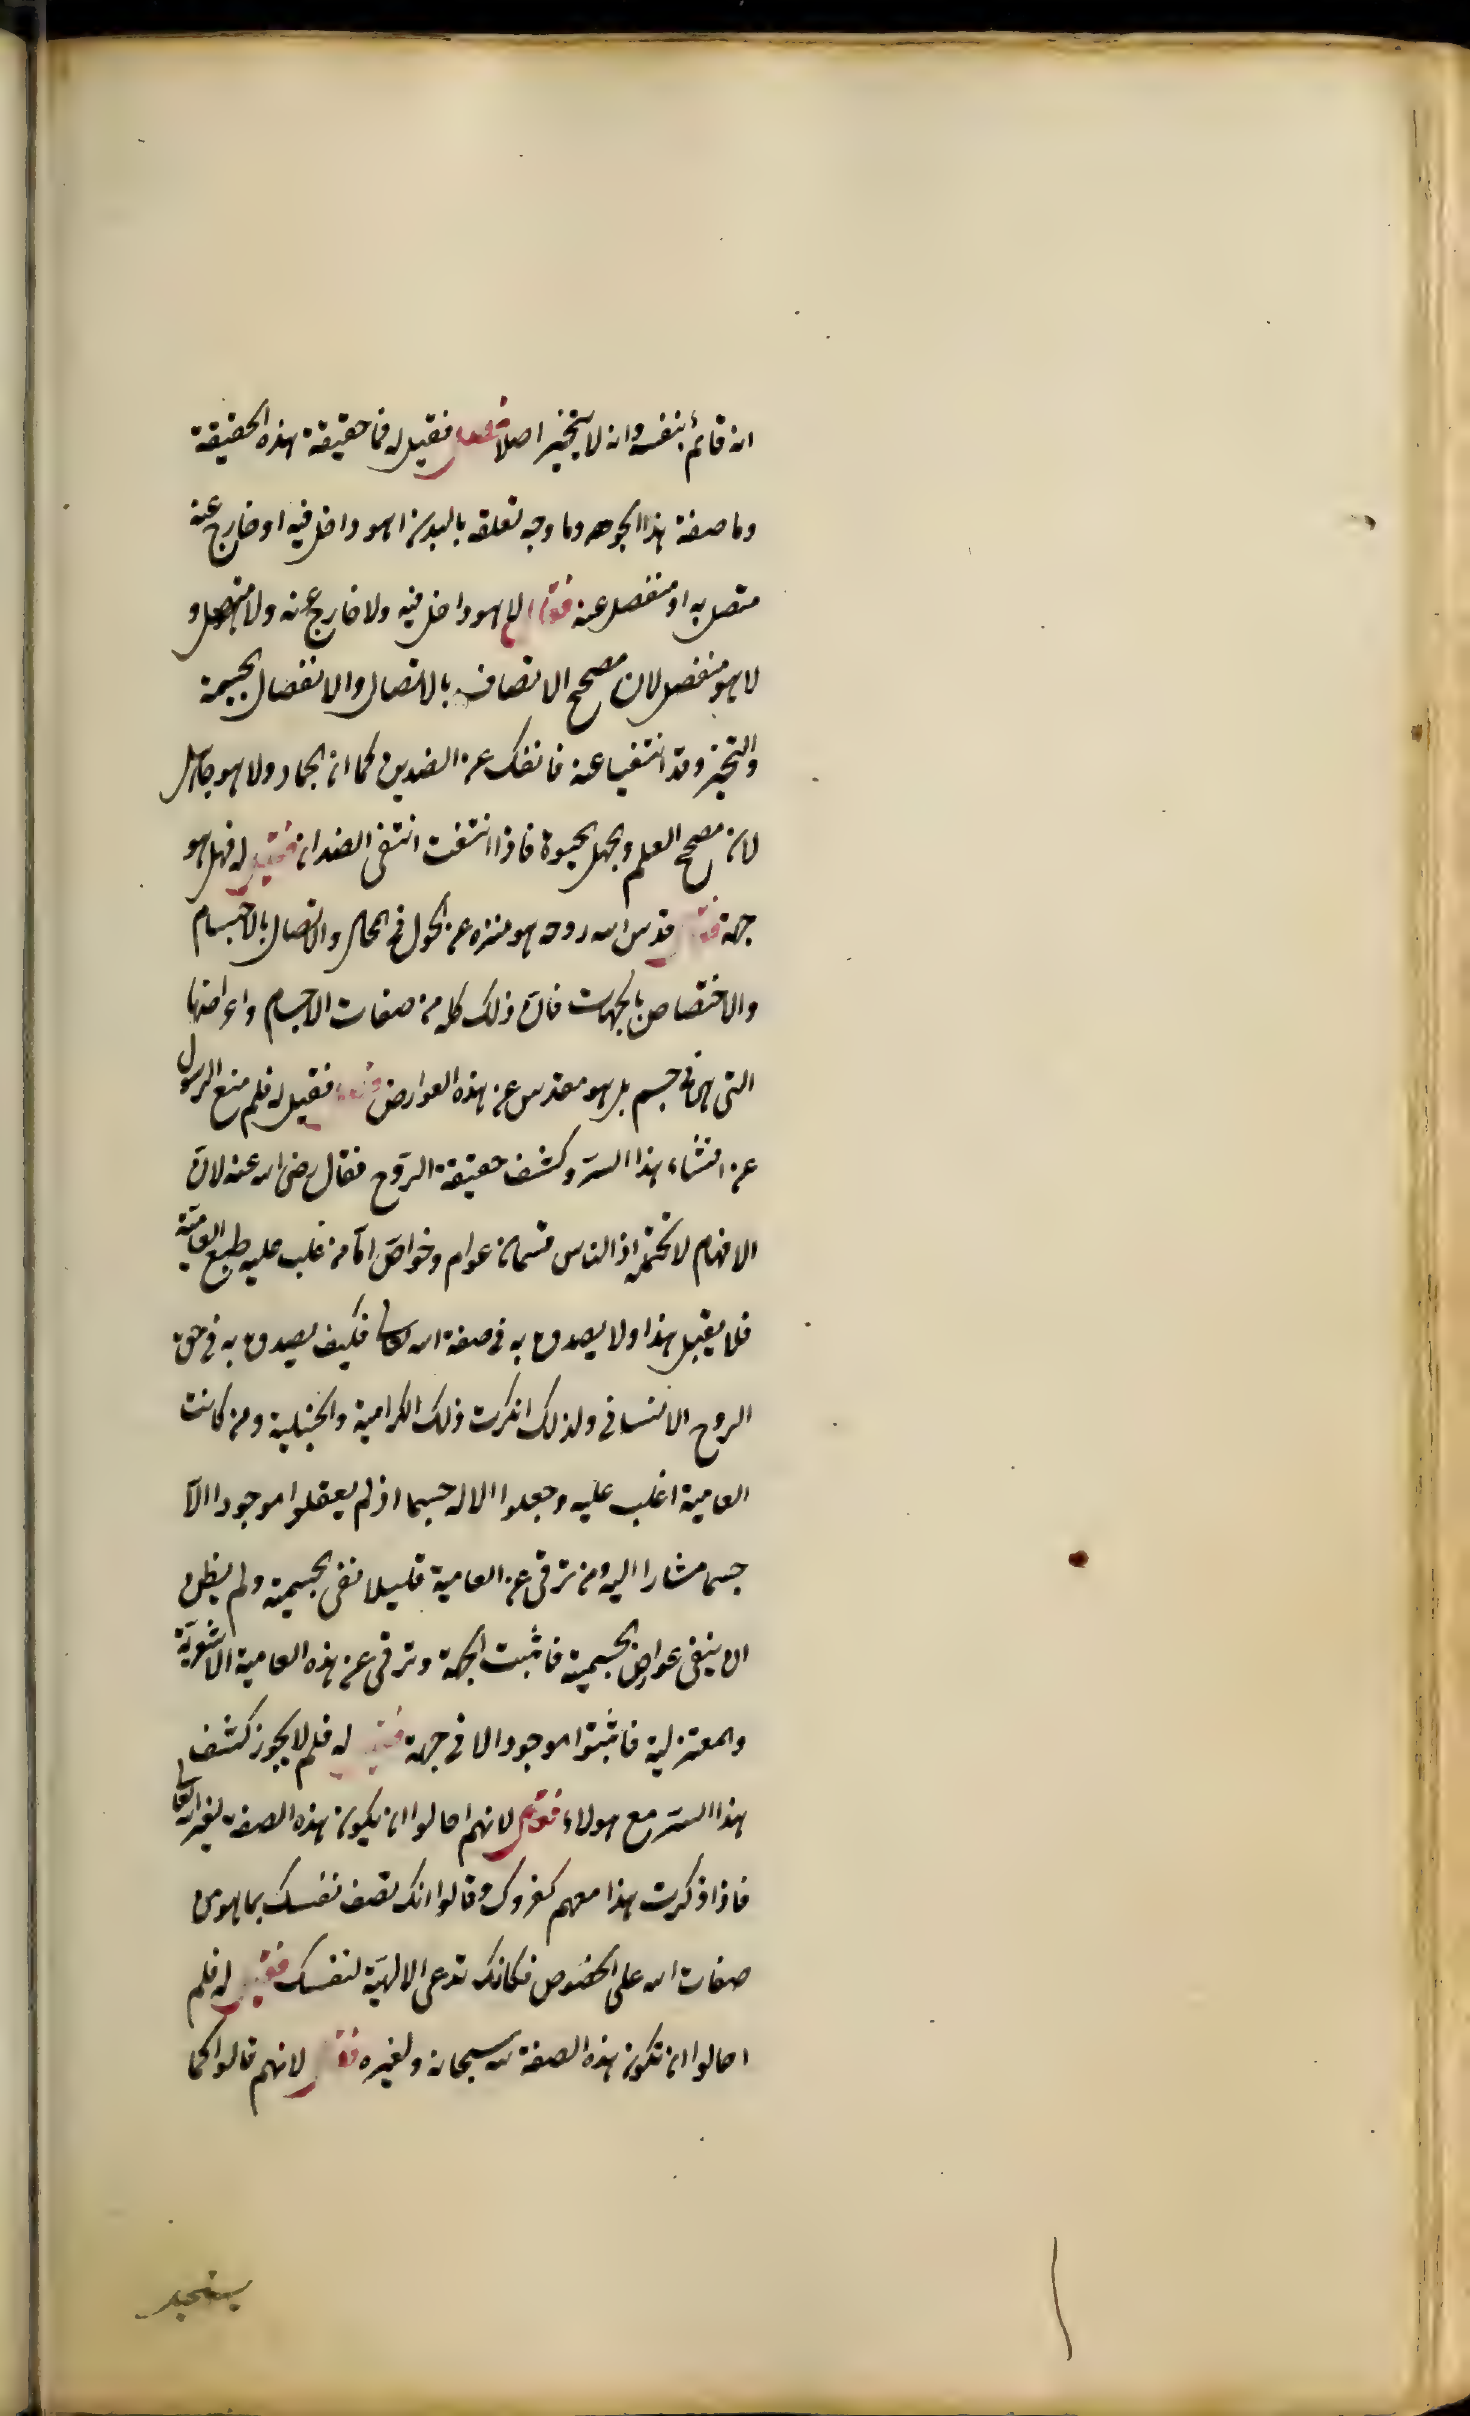 انه قائم بنفسه وانه لا يتحيز اصلا فصل فقيل له فما حقيقة هذه الحقيقة
وما صفة هذا الجوهر وما وجه تعلقه بالبدن اهو داخل فيه او خارج عنه
متصل به او منفصل عنه فقال لا هو داخل فيه ولا خارج عنه ولا متصل و
لا هو منفصل لان مصحح الاتصاف بالاتصال والانفصال الجسمية
والتحيز وقد انتفيا عنه فانفك عن الضدين كما ان الجماد ولا هو جاهل
لان مصحح العلم والجهل الحيوة فاذا انتفت انتفى الضدان فقيل له فهل هو
جهة فقال قدس الله روحه هو منزه عن الحلول في المحال والاتصال بالاجسام
والاختصاص بالجهات فان ذلك كله من صفات الاجسام واعراضها
التي هي في جسم بل هو مقدس عن هذه العوارض فقيل له فلم منع الرسول
عن افشاء هذا السر وكشف حقيقة الروح فقال رضى الله عنه لان
الافهام لا تحتمله اذ الناس قسمان عوام وخواص اما من غلب عليه طبع العامية
فلا يقبل هذا ولا يصدق به في صفة الله تعالى فكيف يصدق به في حق
الروح الانساني ولذلك انكرت ذلك الكرامية والحنبلية ومن كانت
العامية اغلب عليه وجعلوا الاله جسما اذ لم يعقلوا موجودا الا
جسما مشارا اليه ومن ترقى عن العامية قليلا نفى الجسمية ولم يطق
ان ينفى عوارض الجسمية فاثبت الجهة وترقى عن هذه العامية الاشعرية
والمعتزلية فاثبتوا موجودا لا في جهة فقيل له فلم لا يجوز كشف
هذا السر مع هولاء فقال لانهم احالوا ان يكون هذه الصفة لغير الله تعالى
فاذا ذكرت هذا معهم كفروك وقالوا انك تصف نفسك بما هو من
صفات الله على الخصوص فكانك تدعى الالهية لنفسك فقيل له فلم
احالوا ان تكون هذه الصفة لله سبحانه ولغيره فقال لانهم قالوا كما
يستحيل